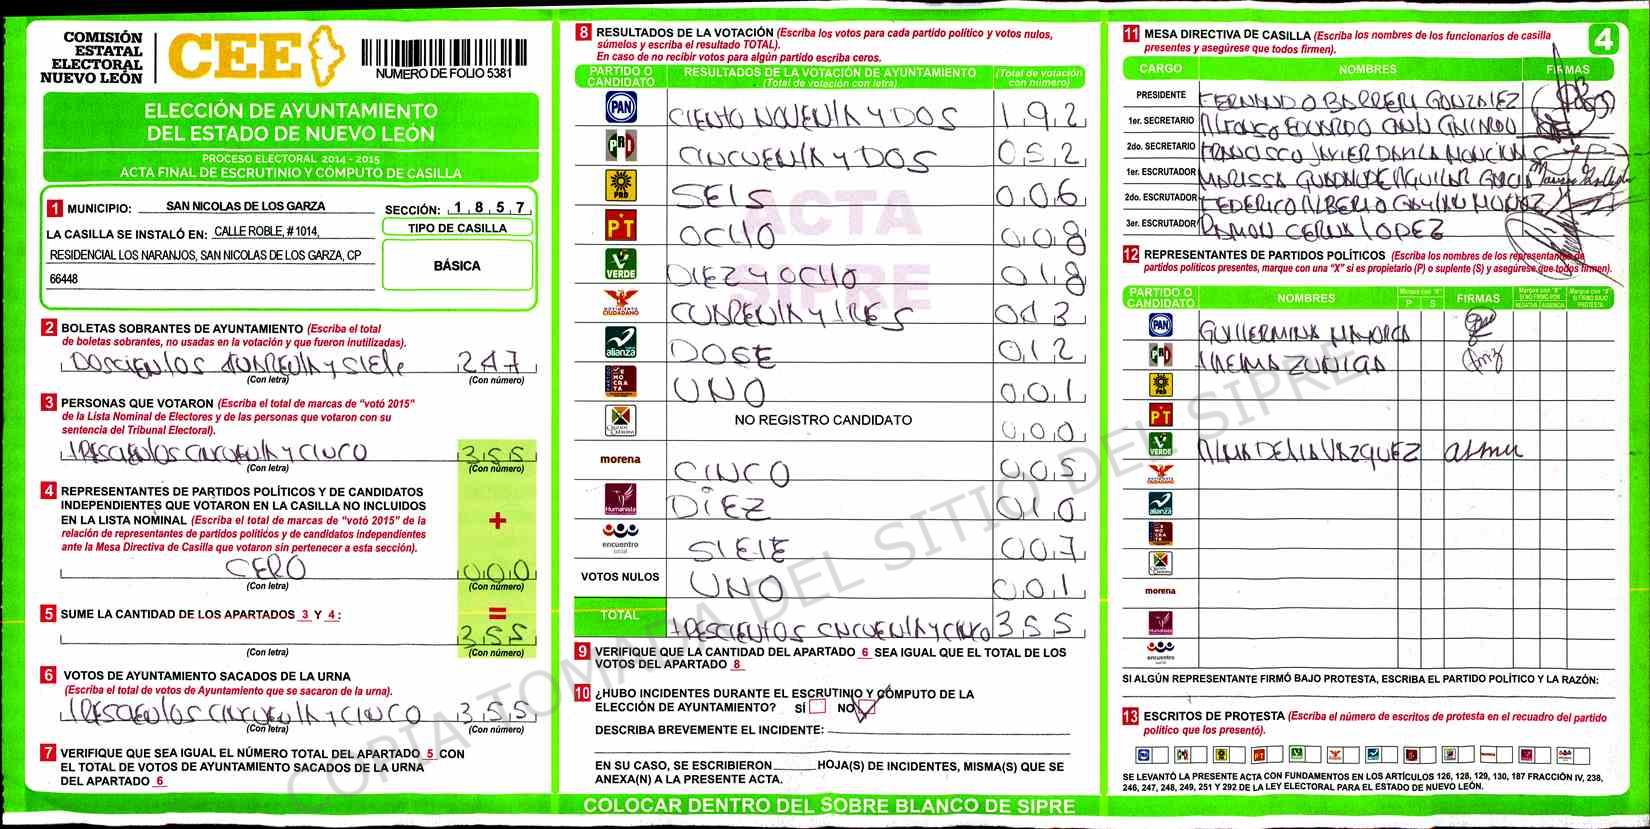 COMISIÓN
ESTATAL
ELECTORAL
NUEVO LEÓN
CEE
NUMERO DE FOLIO 5381
ELECCIÓN DE AYUNTAMIENTO
DEL ESTADO DE NUEVO LEÓN
PROCESO ELECTORAL 2014 - 2015
ACTA FINAL DE ESCRUTINIO Y CÓMPUTO DE CASILLA
1 MUNICIPIO: SAN NICOLAS DE LOS GARZA SECCIÓN: 1 8 5 7
LA CASILLA SE INSTALÓ EN: CALLE ROBLE, # 1014,
RESIDENCIAL LOS NARANJOS, SAN NICOLAS DE LOS GARZA, CP
66448
TIPO DE CASILLA
BÁSICA
2 BOLETAS SOBRANTES DE AYUNTAMIENTO (Escriba el total
de boletas sobrantes, no usadas en la votación y que fueron inutilizadas).
DOSCIENTOS CUARENTA Y SIETE 247
(Con letra) (Con número)
3 PERSONAS QUE VOTARON (Escriba el total de marcas de "votó 2015"
de la Lista Nominal de Electores y de las personas que votaron con su
sentencia del Tribunal Electoral).
TRESCIENTOS CINCUENTA Y CINCO 355
(Con letra) (Con número)
4 REPRESENTANTES DE PARTIDOS POLÍTICOS Y DE CANDIDATOS
INDEPENDIENTES QUE VOTARON EN LA CASILLA NO INCLUIDOS
EN LA LISTA NOMINAL (Escriba el total de marcas de "votó 2015" de la
relación de representantes de partidos políticos y de candidatos independientes
ante la Mesa Directiva de Casilla que votaron sin pertenecer a esta sección).
+
CERO 000
(Con letra) (Con número)
5 SUME LA CANTIDAD DE LOS APARTADOS 3 Y 4: =
355
(Con letra) (Con número)
6 VOTOS DE AYUNTAMIENTO SACADOS DE LA URNA
(Escriba el total de votos de Ayuntamiento que se sacaron de la urna).
TRESCIENTOS CINCUENTA Y CINCO 355
(Con letra) (Con número)
7 VERIFIQUE QUE SEA IGUAL EL NÚMERO TOTAL DEL APARTADO 5 CON
EL TOTAL DE VOTOS DE AYUNTAMIENTO SACADOS DE LA URNA
DEL APARTADO 6
8 RESULTADOS DE LA VOTACIÓN (Escriba los votos para cada partido político y votos nulos,
súmelos y escriba el resultado TOTAL).
En caso de no recibir votos para algún partido escriba ceros.
PARTIDO O CANDIDATO RESULTADOS DE LA VOTACIÓN DE AYUNTAMIENTO (Total de votación con letra) (Total de votación con número)
PAN CIENTO NOVENTA Y DOS 192
PRI CINCUENTA Y DOS 052
PRD SEIS 006
PT OCHO 008
VERDE DIEZ Y OCHO 018
MOVIMIENTO CIUDADANO CUARENTA Y TRES 043
alianza DOSE 012
DEMOCRATA UNO 001
NO REGISTRO CANDIDATO 000
morena CINCO 005
Humanista DIEZ 010
encuentro social SIETE 007
VOTOS NULOS UNO 001
TOTAL TRESCIENTOS CINCUENTA Y CINCO 355
ACTA
SIPRE
9 VERIFIQUE QUE LA CANTIDAD DEL APARTADO 6 SEA IGUAL QUE EL TOTAL DE LOS
VOTOS DEL APARTADO 8
10 ¿HUBO INCIDENTES DURANTE EL ESCRUTINIO Y CÓMPUTO DE LA
ELECCIÓN DE AYUNTAMIENTO? SÍ NO
DESCRIBA BREVEMENTE EL INCIDENTE:
EN SU CASO, SE ESCRIBIERON HOJA(S) DE INCIDENTES, MISMA(S) QUE SE
ANEXA(N) A LA PRESENTE ACTA.
COLOCAR DENTRO DEL SOBRE BLANCO DE SIPRE
11 MESA DIRECTIVA DE CASILLA (Escriba los nombres de los funcionarios de casilla
presentes y asegúrese que todos firmen).
4
CARGO NOMBRES FIRMAS
PRESIDENTE FERNANDO BARRERA GONZALEZ
1er. SECRETARIO ALFONSO EDUARDO CANO GALLARDO
2do. SECRETARIO FRANCISCO JAVIER DAVILA MONCIVAIS
1er. ESCRUTADOR MARISSA GUADALUPE AGUILAR GARCIA
2do. ESCRUTADOR FEDERICO ALBERTO GAYTAN MUÑOZ
3er. ESCRUTADOR RAMON CERNA LOPEZ
12 REPRESENTANTES DE PARTIDOS POLÍTICOS (Escriba los nombres de los representantes de
partidos políticos presentes, marque con una "X" si es propietario (P) o suplente (S) y asegúrese que todos firmen).
PARTIDO O CANDIDATO NOMBRES P S FIRMAS
PAN GUILLERMINA MAYORGA
PRI ZUÑIGA
PRD
PT
VERDE ALMA DELIA VAZQUEZ
alianza
morena
Humanista
encuentro social
SI ALGÚN REPRESENTANTE FIRMÓ BAJO PROTESTA, ESCRIBA EL PARTIDO POLÍTICO Y LA RAZÓN:
13 ESCRITOS DE PROTESTA (Escriba el número de escritos de protesta en el recuadro del partido
político que los presentó).
SE LEVANTÓ LA PRESENTE ACTA CON FUNDAMENTOS EN LOS ARTÍCULOS 126, 128, 129, 130, 187 FRACCIÓN IV, 238,
246, 247, 248, 249, 251 Y 292 DE LA LEY ELECTORAL PARA EL ESTADO DE NUEVO LEÓN.
COPIA TOMADA DEL SITIO DEL SIPRE